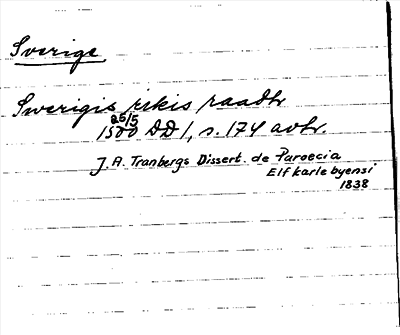 Sverige
Swerigis rikis raadhr
25/5
1500 DD 1, s. 174 avtr.
J. A. Tranbergs Dissert. de Paroecia
Elfkarlebyensi
1838